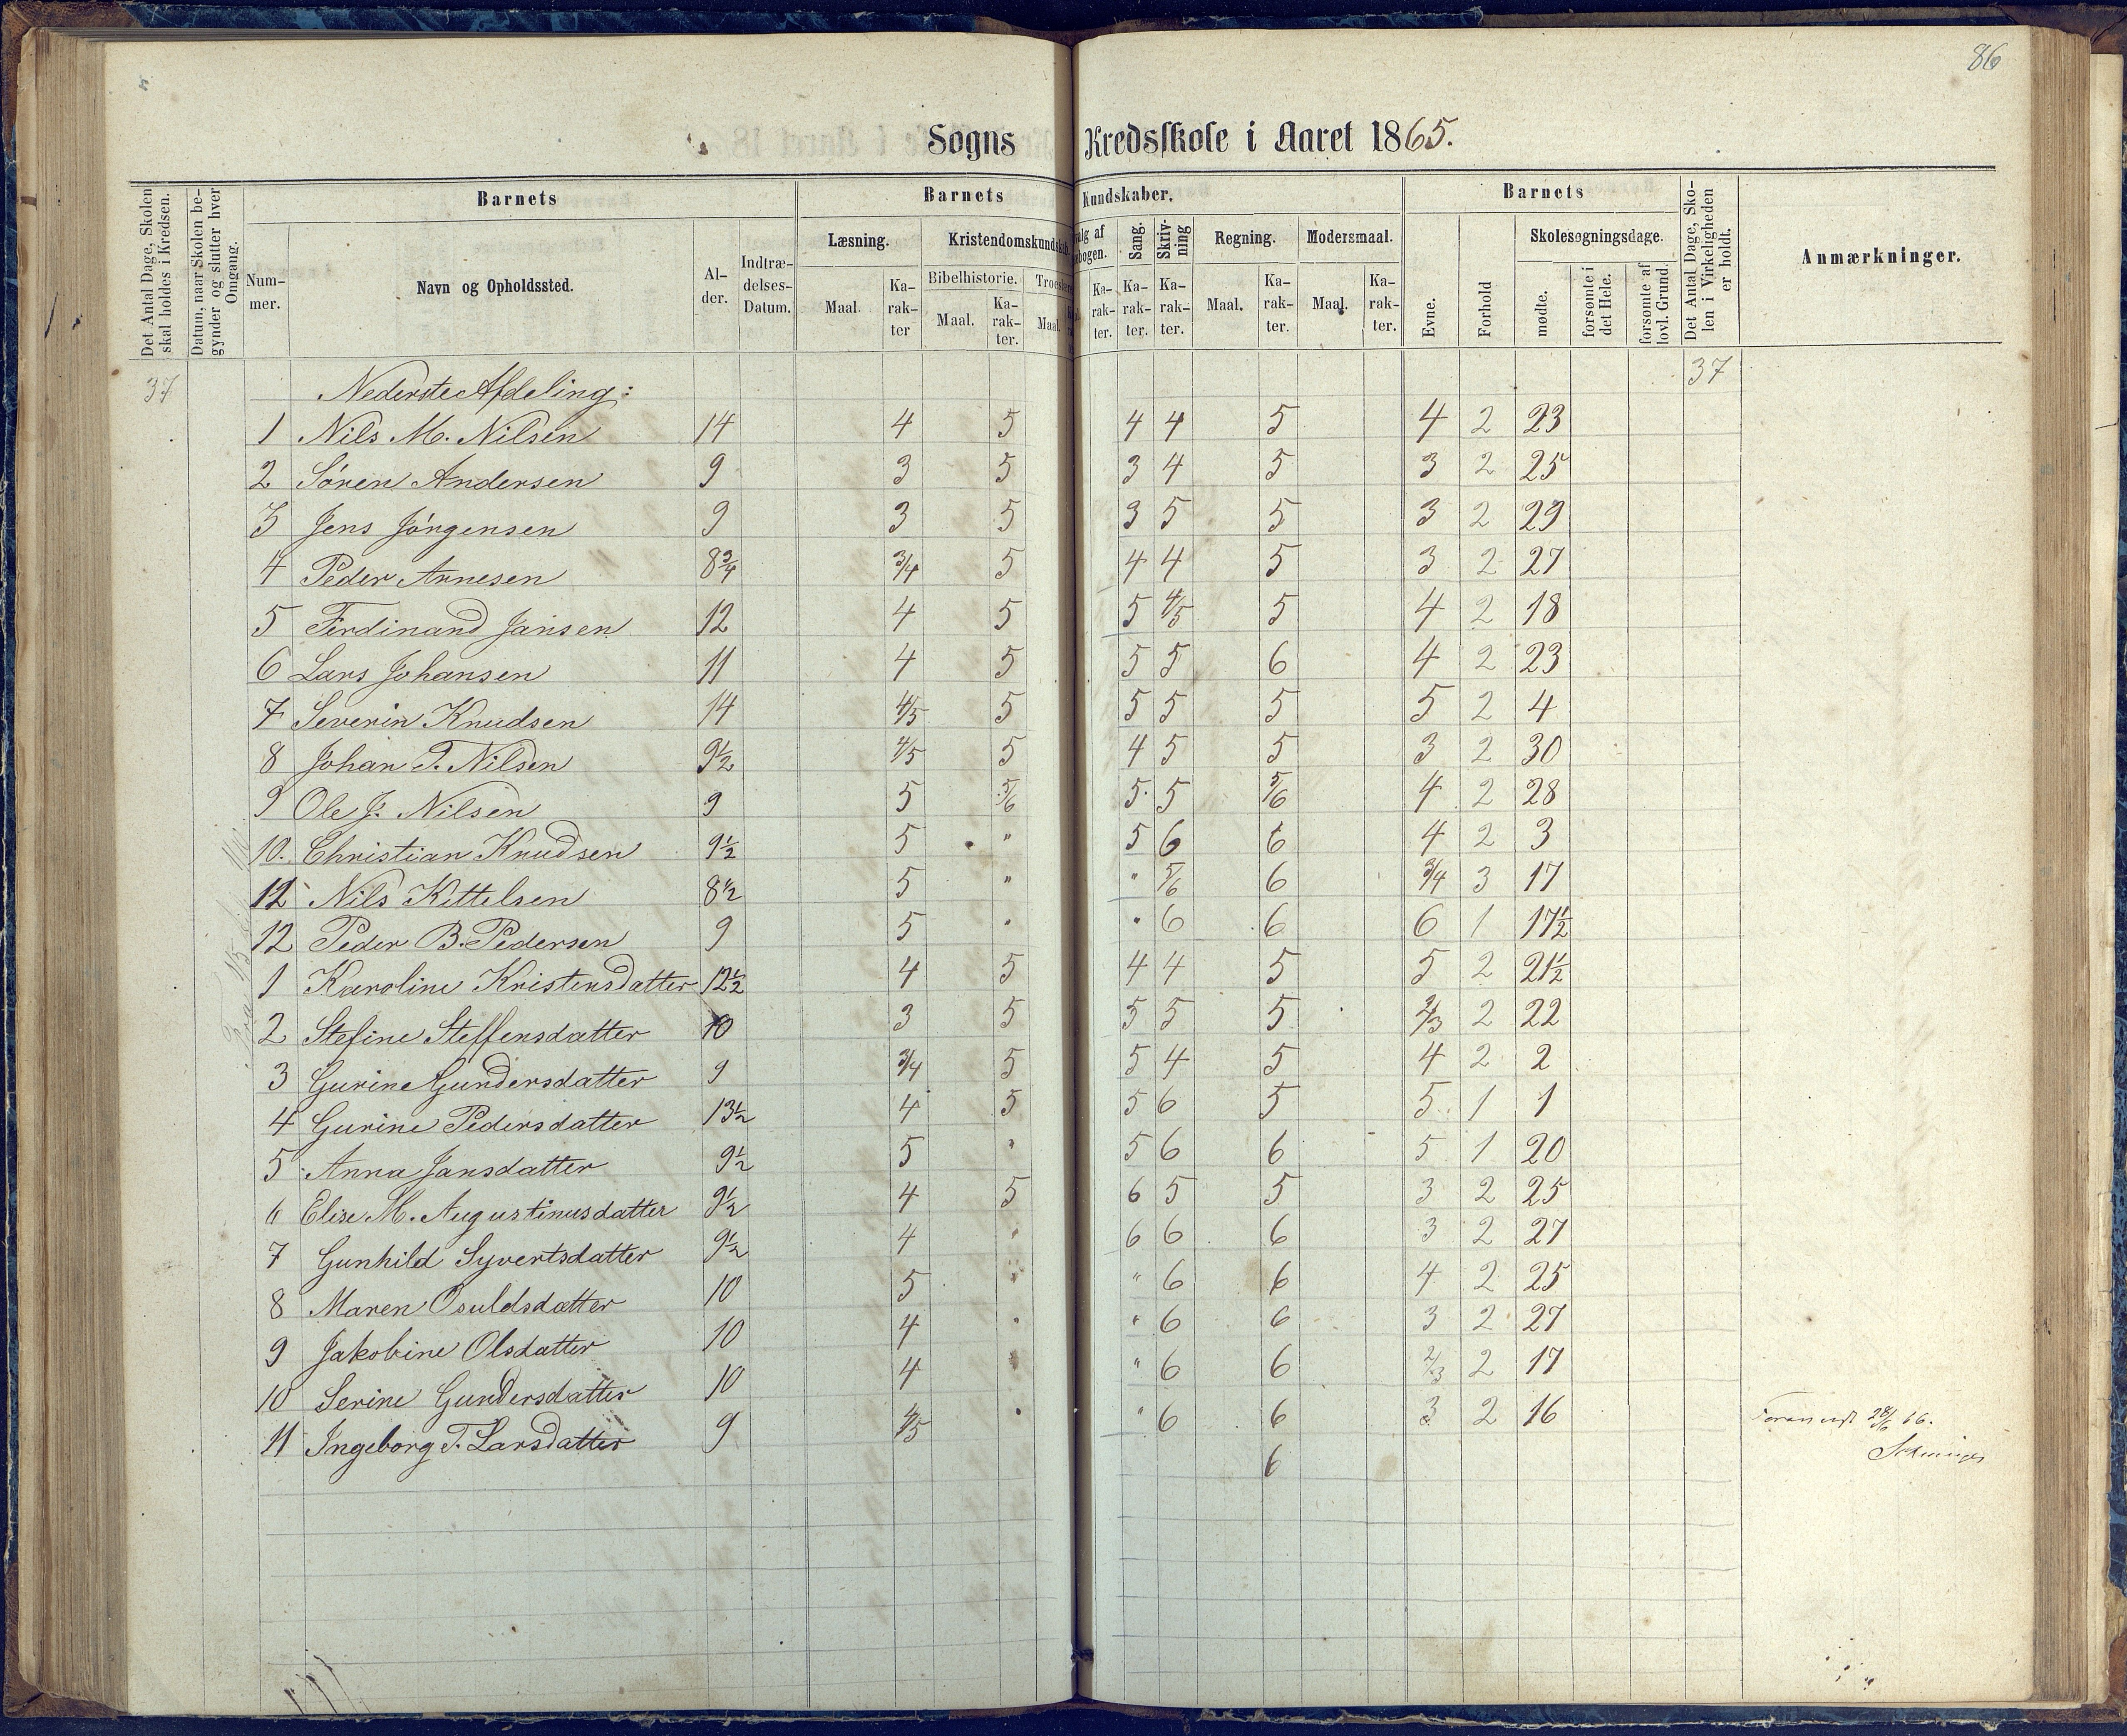 86
Sogns Kredsskole i Aaret 1865.
Det Antal Dage, Skolen skal holdes i Kredsen.
Datum, naar Skolen begynder og slutter hver Omgang.
Barnets
Nummer.
Navn og Opholdssted.
Alder.
Indtrædelses-Datum.
Barnets Kundskaber.
Læsning.
Maal.
Karakter
Kristendomskundskab
Bibelhistorie.
Maal.
Karakter.
Troes
Maal.
Karakter.
Sang.
Karakter.
Skrivning
Karakter.
Regning.
Maal.
Karakter.
Modersmaal.
Maal.
Karakter.
Barnets
Evne.
Forhold
Skolesøgningsdage.
mødte.
forsømte i det Hele.
forsømte af lovl. Grund.
Det Antal Dage, Skolen i Virkeligheden er holdt.
Anmærkninger.
37 Nederste Afdeling: 37
1 Nils M. Nilsen 14 4 5 4 4 5 4 2 23
2 Søren Andersen 9 3 5 3 4 5 3 2 25
3 Jens Jörgensen 9 3 5 3 5 5 3 2 29
4 Peder Arnesen 8 3/4 3/4 5 4 4 5 3 2 27
5 Ferdinand Jansen 12 4 5 5 4/5 5 4 2 18
6 Lars Johansen 11 4 5 5 5 6 4 2 23
7 Severin Knudsen 14 4/5 5 5 5 5 5 2 4
8 Johan T. Nilsen 9 1/2 4/5 5 4 5 5 3 2 30
9 Ole J. Nilsen 9 5 5/6 5 5 5/6 4 2 28
10. Christian Knudsen 9 1/2 5 " 5 6 6 4 2 3
11 Nils Kittelsen 8 1/2 5 " " 5/6 6 3/4 3 17
12 Peder B. Pedersen 9 5 " " 6 6 6 1 17 1/2
1 Karoline Kristensdatter 12 1/2 4 5 4 4 5 5 2 21 1/2
2 Stefine Steffensdatter 10 3 5 5 5 5 2/3 2 22
3 Gurine Gundersdatter 9 3/4 5 5 4 5 4 2 2
4 Gurine Pedersdatter 13 1/2 4 5 5 6 5 5 1 1
5 Anna Jansdatter 9 1/2 5 " 5 6 6 5 1 20
6 Elise M. Augustinusdatter 9 1/2 4 5 6 5 5 3 2 25
7 Gunhild Syvertsdatter 9 1/2 4 " 6 6 6 3 2 27
8 Maren Osuldsdatter 10 5 " " 6 6 4 2 25
9 Jakobine Olsdatter 10 4 " " 6 6 3 2 27
10 Serine Gundersdatter 10 4 " " 6 6 2/3 2 17
11 Ingeborg T. Larsdatter 9 4/5 " " 6 6 3 2 16
28/6 66.
6